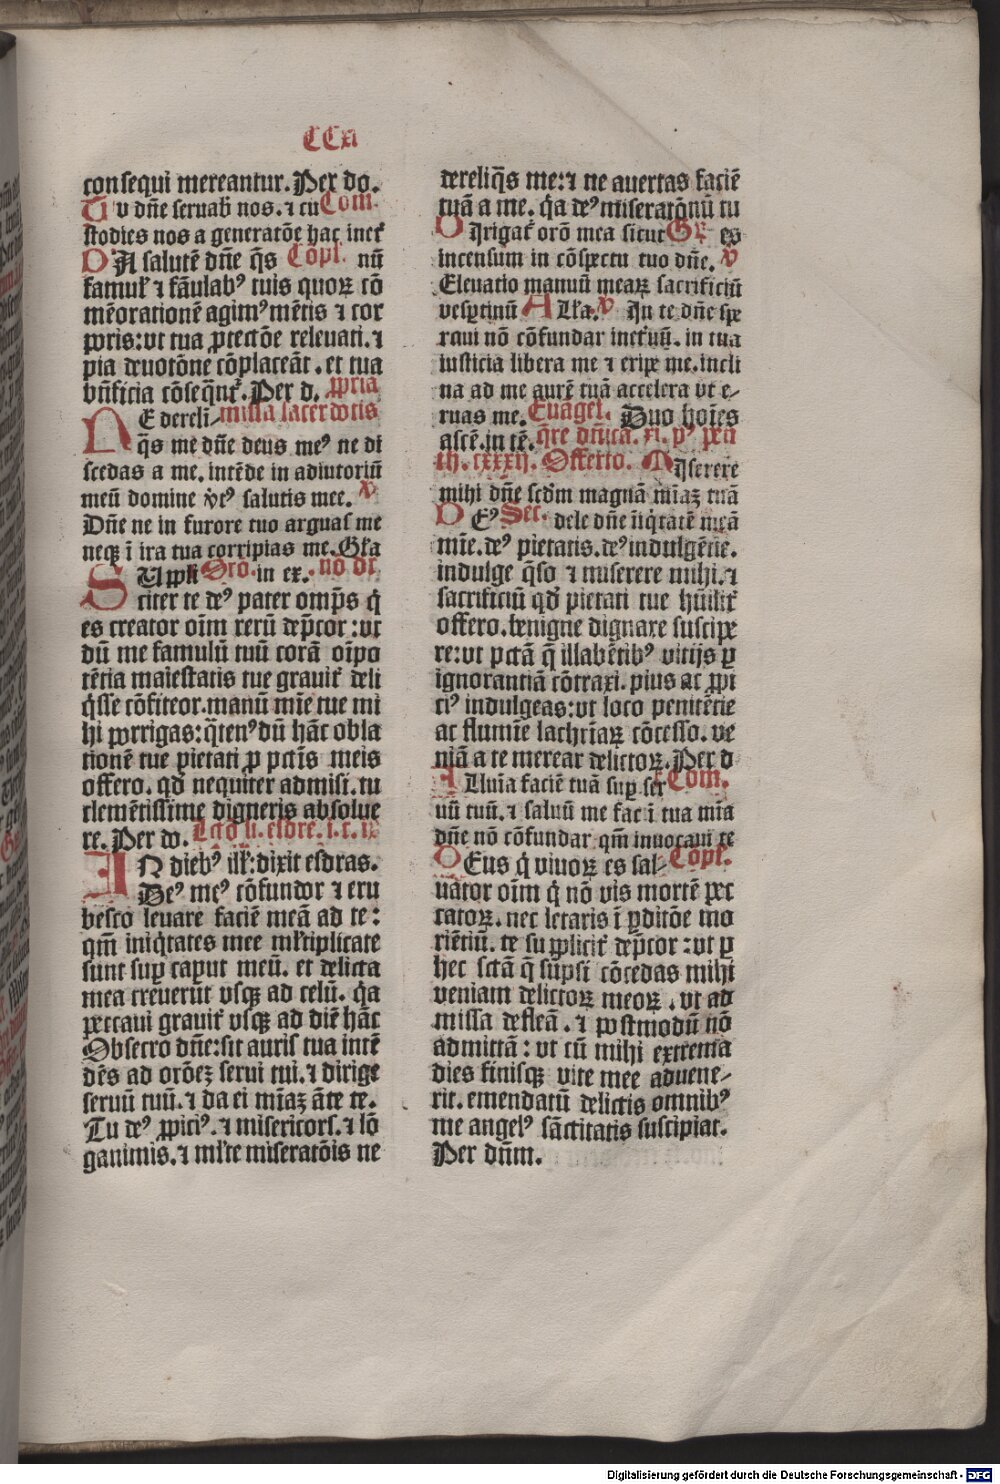 CCxi
consequi mereantur. Per do.
Tu dn̄e seruab nos. ⁊ cu Com.
stodies nos a generatōe hac inet̄
AD salutē dn̄e q̄s Cōpl. nū
famul̄ ⁊ fāulabꝰ tuis quoꝝ cō
mēorationē agimꝰ mētis ⁊ cor
poris: vt tua ꝓtectōe releuati. ⁊
pia deuotōne cōplaceāt. et tua
bn̄ficia cōseq̄nt̄. Per d. ꝓpria
NE dereli⸗ missa sacerdotis
q̄s me dn̄e deus meꝰ ne di
scedas a me. intēde in adiutoriū
meū domine deꝰ salutis mee. v̄
Dn̄e ne in furore tuo arguas me
neqꝫ ī ira tua corripias me. Gl̄a
SUppli Oro. in ex. nō dr̄
citer te deꝰ pater omp̄s q̇
es creator oīm rerū dep̄cor: vt
dū me famulū tuū corā oīpo
tētia maiestatis tue grauit̄ deli
q̇sse cōfiteor. manū mīe tue mi
hi porrigas: q̇tenꝰ dū hāc obla
tionē tue pietati ꝓ pctīs meis
offero. qd̄ nequiter admisi. tu
clemētissime digneris absolue
re. Per do. Lctō ii. esdre. i. c. ix
IN diebꝰ ill̄: dixit esdras.
Deꝰ meꝰ cōfundor ⁊ eru
besco leuare faciē meā ad te:
qm̄ iniq̇tates mee ml̄tiplicate
sunt suꝑ caput meū. et delicta
mea creuerūt vsqꝫ ad celū. q̇a
peccaui grauit̄ vsqꝫ ad diē hāc
Obsecro dn̄e: sit auris tua intē
dēs ad orōeꝫ serui tui. ⁊ dirige
seruū tuū. ⁊ da ei mīaꝫ āte te.
Tu deꝰ ꝓpiciꝰ. ⁊ misericors. ⁊ lō
ganimis. ⁊ ml̄te miseratōis ne
dereliq̄s me: ⁊ ne auertas faciē
tuā a me. q̇a deꝰ miseratōnū tu
DIrigat̄ orō mea sicut Gr̄. es
incensum in cōspectu tuo dn̄e. v̄
Eleuatio manuū meaꝝ sacrificiū
vesꝑtinū All̄a. v̄ In te dn̄e spe
raui nō cōfundar inet̄nū. in tua
iusticia libera me ⁊ eripe me. incli
na ad me aurē tuā accelera vt e⸗
ruas me. Euāgel. Duo hoīes
ascē. in tē. q̄re dn̄ica. xi. pꝰ pen
th. cxxxij. Offerto. MIserere
mihi dn̄e scd̄m magnā mīaꝫ tuā
DEꝰ Sec. dele dn̄e īiq̇tatē meā
mīe. deꝰ pietatis. deꝰ indulgētie.
indulge q̄so ⁊ miserere mihi. ⁊
sacrificiū qd̄ pietati tue hūilit̄
offero. benigne dignare suscipe
re: vt pctā q̄ illabētibꝰ vitijs ꝑ
ignorantiā cōtraxi. pius ac ꝓpi
ciꝰ indulgeas: vt loco penitētie
ac flumīe lachrīaꝝ cōcesso. ve
niā a te merear delictoꝝ. Per d
Illuīa faciē tuā suꝑ ser Com.
uū tuū. ⁊ saluū me fac ī tua mīa
dn̄e nō cōfundar qm̄ inuocaui te
DEus q̇ viuoꝝ es sal⸗ Cōpl̄.
uator oīm q̇ nō vis mortē pec
catoꝝ. nec letaris ī ꝑditōe mo
riētiū. te supplicit̄ dep̄cor: vt ꝑ
hec sctā q̄ sūpsi cōcedas mihi
veniam delictoꝝ meoꝝ. vt ad
missa defleā. ⁊ postmodū nō
admittā: vt cū mihi extrema
dies finisqꝫ vite mee aduene⸗
rit. emendatū delictis omnibꝰ
me angelꝰ sāctitatis suscipiat.
Per dn̄m.
Digitalisierung gefördert durch die Deutsche Forschungsgemeinschaft - DFG